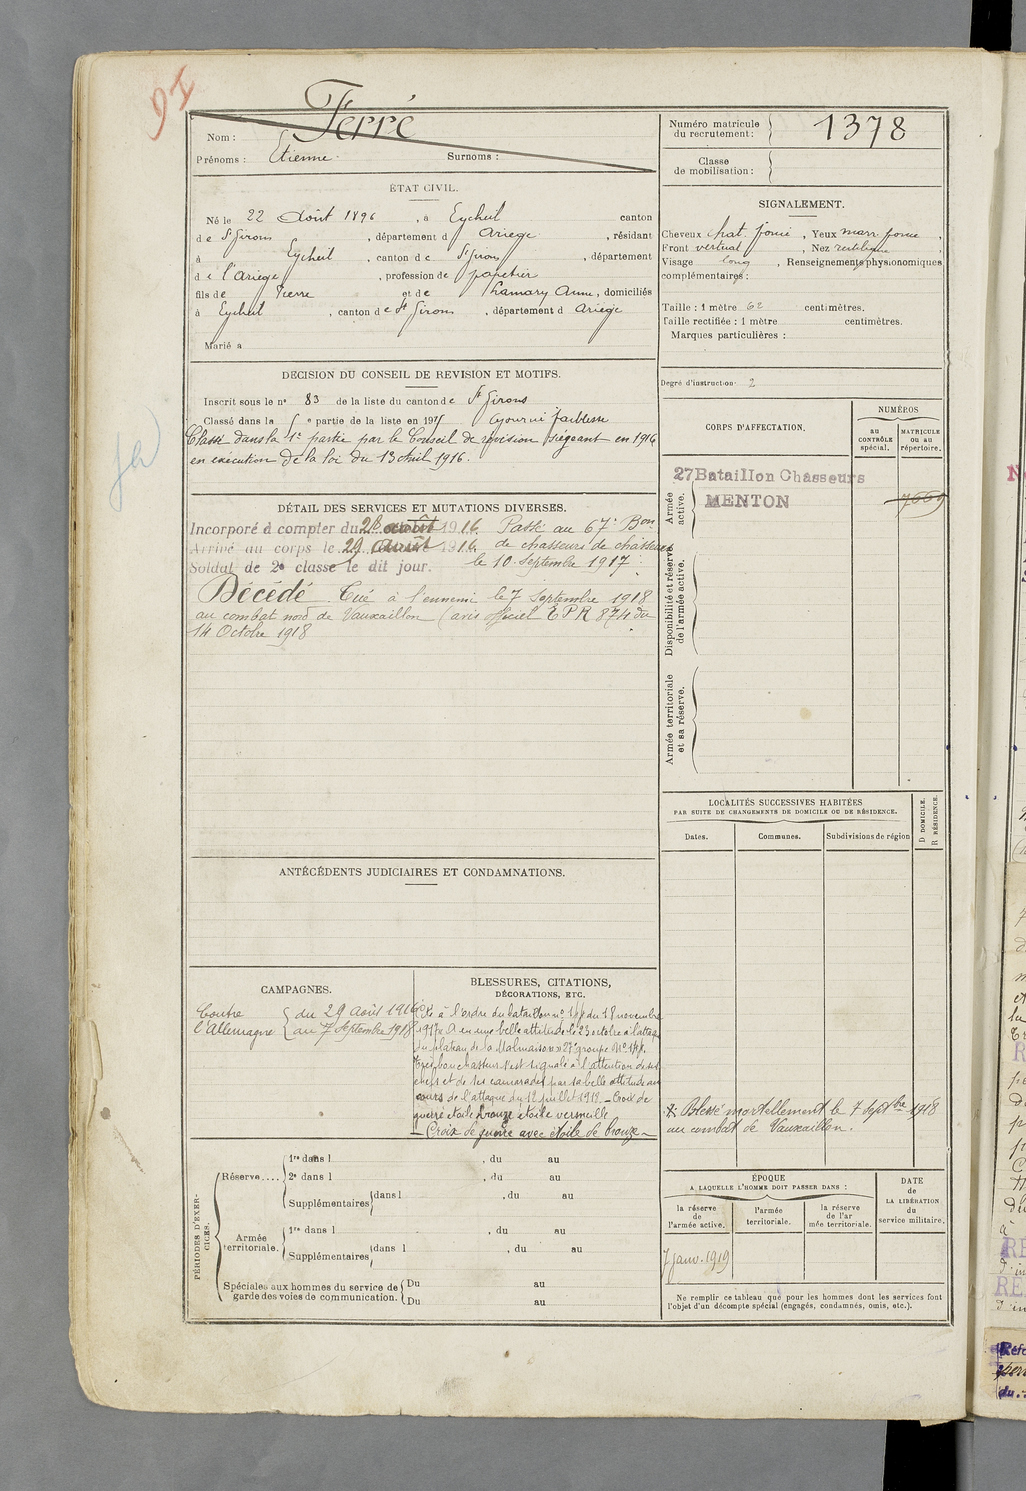 91
Nom : Ferré
Prénoms : Etienne. Surnoms :
Numéro matricule
du recrutement : 1378
Classe
de mobilisation :
ÉTAT CIVIL.
Né le 22 Août 1896, à Eycheil canton
de St Girons, département d Ariège, résidant
à Eycheil, canton de St Girons, département
de l'Ariège, profession de papetier
fils de Pierre et de Anne, domiciliés
à Eycheil, canton de St Girons, département d Ariège
Marié à
SIGNALEMENT.
Cheveux chat. foncé, Yeux marr. foncé,
Front vertical, Nez rectiligne
Visage long, Renseignements physionomiques
complémentaires :
Taille : 1 mètre 62 centimètres.
Taille rectifiée : 1 mètre centimètres.
Marques particulières :
Degré d'instruction 2
DÉCISION DU CONSEIL DE RÉVISION ET MOTIFS.
Inscrit sous le no 83 de la liste du canton de St Girons
Classé dans la 5e partie de la liste en 1915 Ajourné faiblesse
Classé dans la 1e partie par le Conseil de révision siégeant en 1916
en exécution de la loi du 13 Avril 1916.
CORPS D'AFFECTATION.
NUMÉROS
au
CONTRÔLE
spécial.
MATRICULE
ou au
répertoire.
Armée
active.
27 Bataillon Chasseurs
MENTON
7669
Disponibilité et réserve
de l'armée active.
Armée territoriale
et sa réserve.
DÉTAIL DES SERVICES ET MUTATIONS DIVERSES.
Incorporé à compter du août 1916 Passé au 67e Bon
Arrivé au corps le 29 Août 1916. de chasseurs de chasseurs
Soldat de 2e classe le dit jour. le 10 Septembre 1917
Décédé. Tué à l'ennemi le 7 Septembre 1918
au combat nord de Vauxaillon (avis officiel E P R 874 du
14 Octobre 1918
LOCALITÉS SUCCESSIVES HABITÉES
PAR SUITE DE CHANGEMENTS DE DOMICILE OU DE RÉSIDENCE.
Dates. Communes. Subdivisions de région
D DOMICILE.
R RÉSIDENCE.
ANTÉCÉDENTS JUDICIAIRES ET CONDAMNATIONS.
CAMPAGNES.
Contre du 29 Août 1916
l'Allemagne au 7 Septembre 1918
BLESSURES, CITATIONS,
DÉCORATIONS, ETC.
Cité à l'ordre du bataillon no du 18 novembre
1917 « A eu une belle attitude le 23 octobre à l'attaque
du plateau de la Malmaison » 27e groupe No
Très bon chasseur s'est signalé à l'attention de ses
chefs et de ses camarades par sa belle attitude au
cours de l'attaque du 12 juillet 1918. — Croix de
guerre étoile bronze étoile vermeille
— Croix de guerre avec étoile de bronze —
Blessé mortellement le 7 Septbre 1918
au combat de Vauxaillon.
PÉRIODES D'EXERCICES.
Réserve....
1re dans l , du au
2e dans l , du au
Supplémentaires dans l , du au
Armée
territoriale.
1re dans l , du au
Supplémentaires dans l , du au
Spéciales aux hommes du service de
garde des voies de communication.
Du au
Du au
ÉPOQUE
A LAQUELLE L'HOMME DOIT PASSER DANS :
la réserve
de
l'armée active.
l'armée
territoriale.
la réserve
de l'ar
mée territoriale.
DATE
de
LA LIBÉRATION
du
service militaire.
7 janv. 1919
Ne remplir ce tableau que pour les hommes dont les services font
l'objet d'un décompte spécial (engagés, condamnés, omis, etc.).